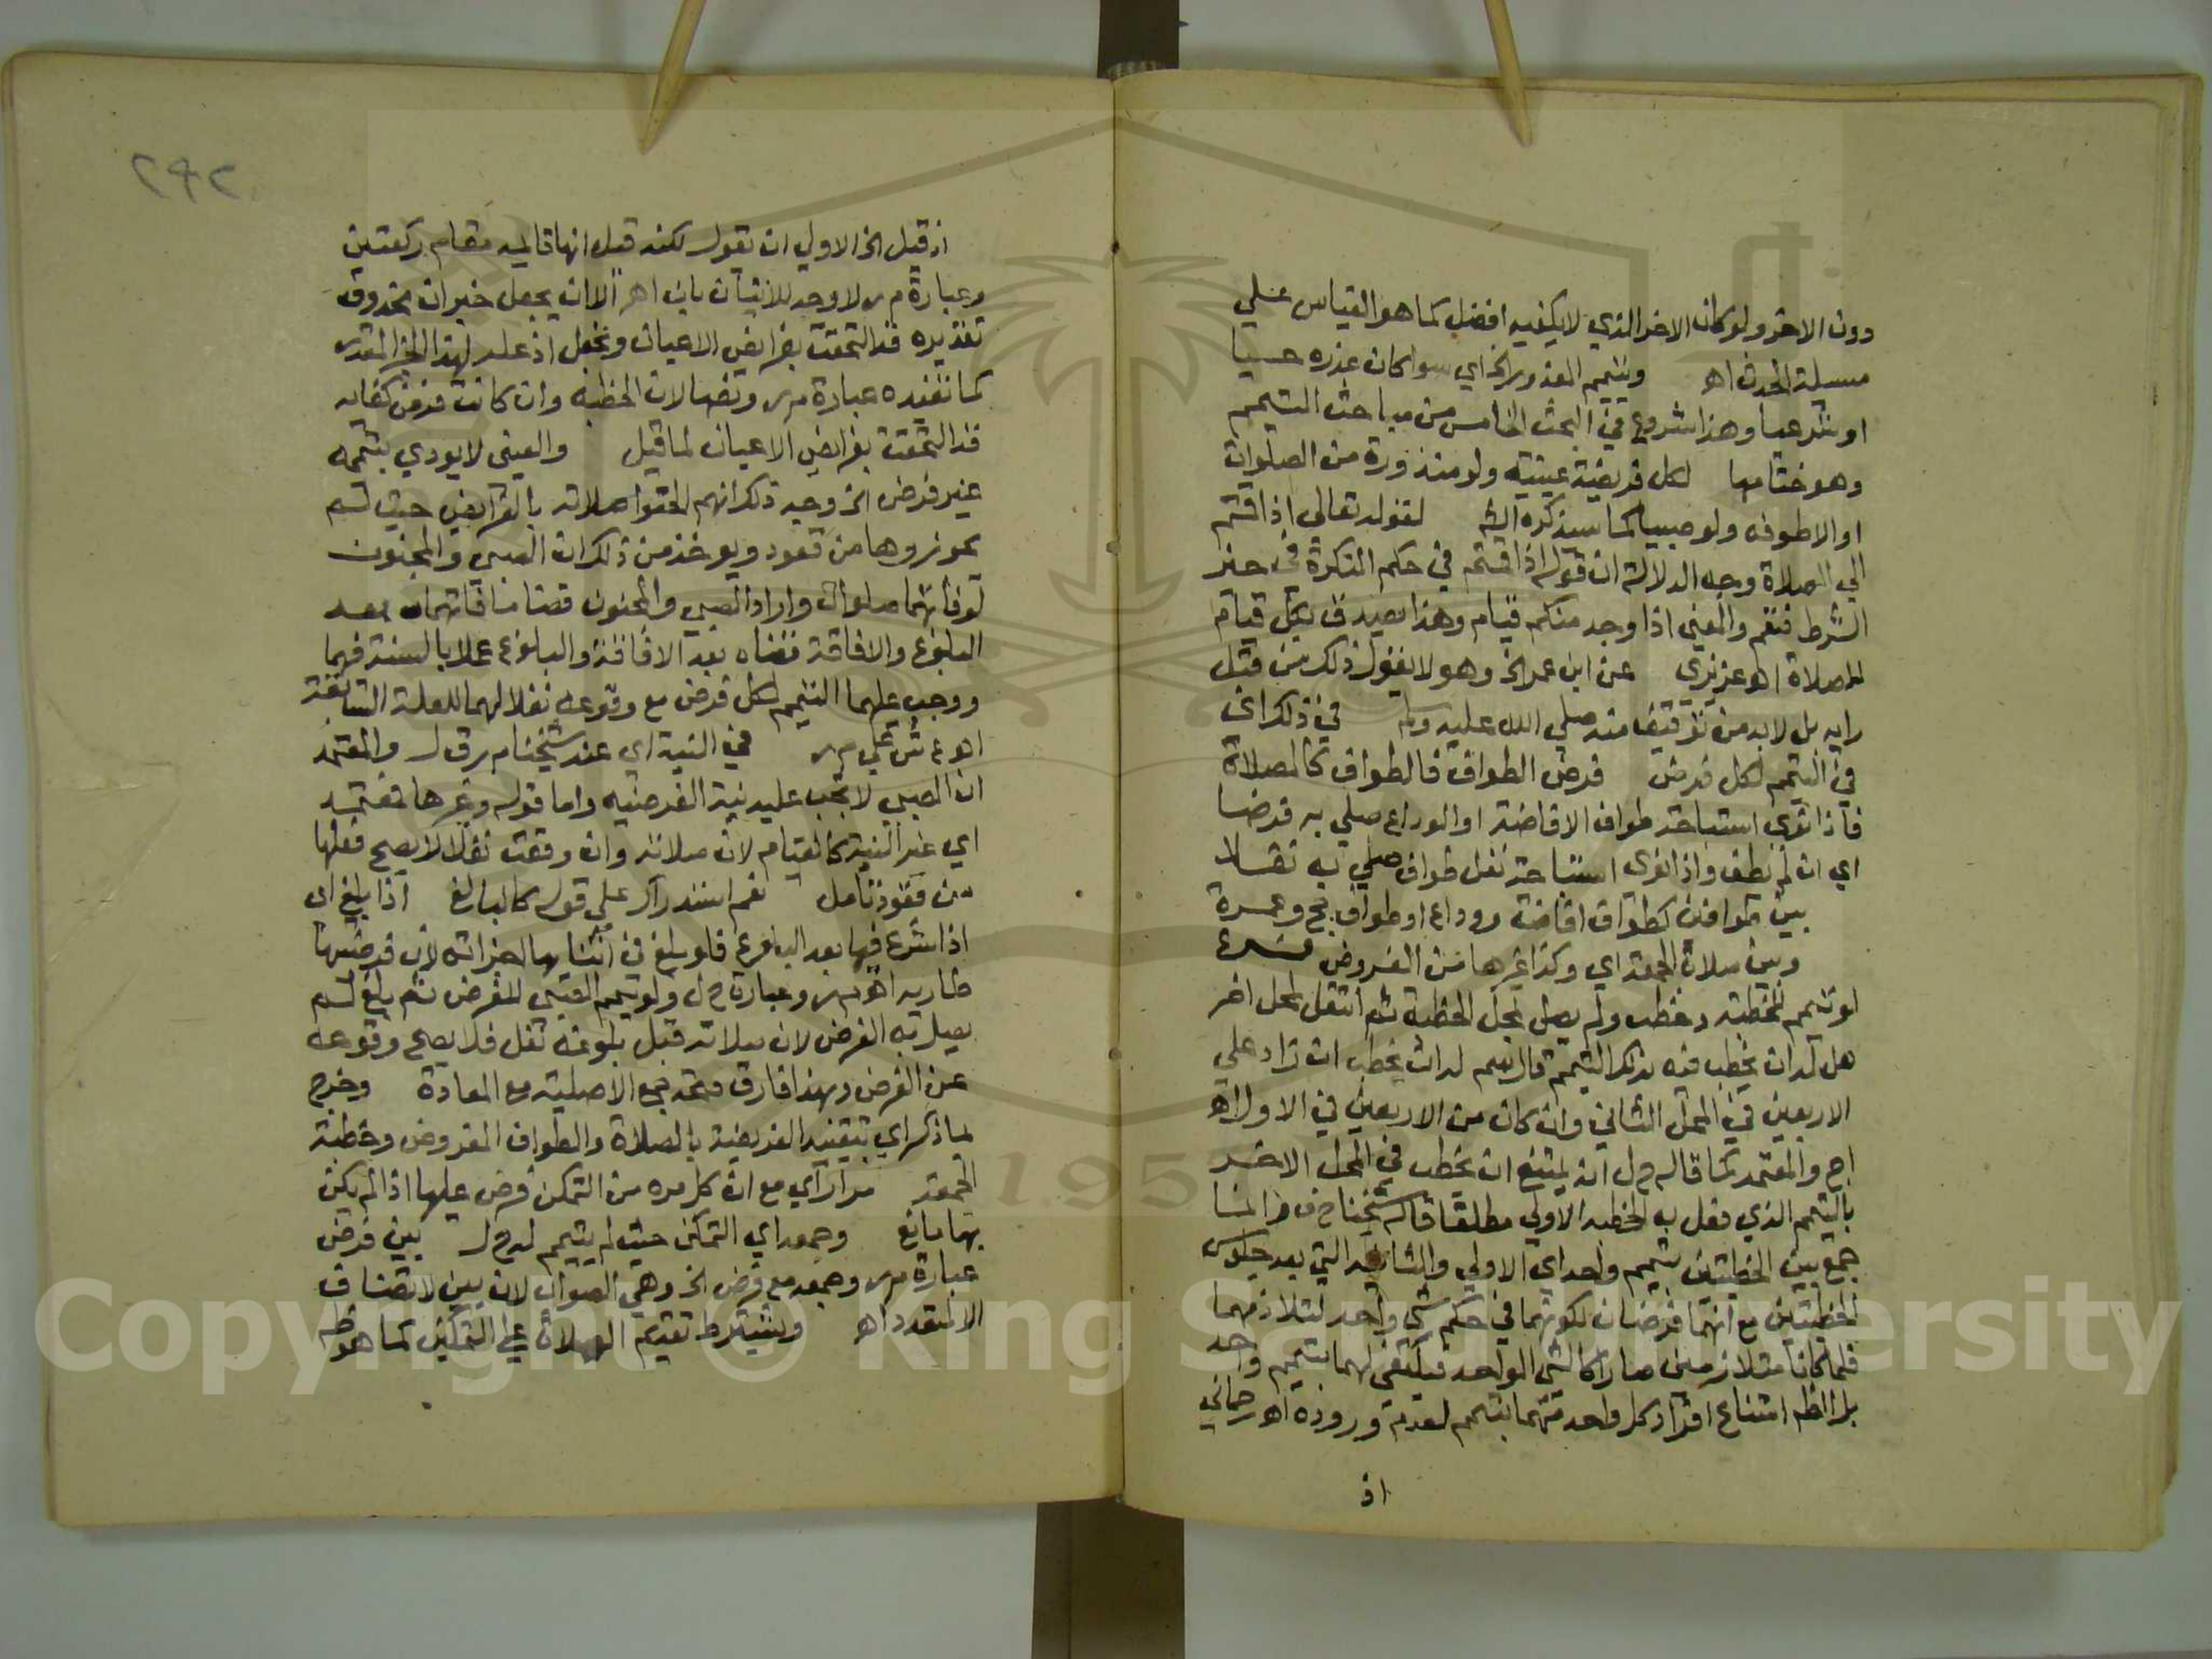 دون الاخر ولو كان الاخر الذي لا يكفيه افضل كما هو القياس على
مسيلة الحدث اه ويتيمم المعذور الخ اي سوا كان عذره حسيا
او شرعيا وهذا شروع في البحث الخامس من مباحث التيمم
وهو ختامها لكل فريضة عينية ولو منذورة من الصلوات
او الاطوفه ولو صبيا كما سيذكره الش لقوله تعالى اذا قمتم
الى الصلاة وجه الدلالة ان قوله اذا قمتم في حكم النكرة في حيز
الشرط فتعم والمعنى اذا وجد منكم قيام وهذا يصدق بكل قيام
للصلاة اه عزيزي عن ابن عمر الخ وهو لا يقول ذلك من قبل
رايه بل لابد من توقيف منه صلى الله عليه وسلم في ذلك اي
في التيمم لكل فرض فرض الطواف فالطواف كالصلاة
فاذا نوى استباحة طواف الافاضة او الوداع صلى به فرضا
اي ان لم يطف واذا نوى استباحة نفل طواف صلى به نفلا
بين طوافين كطواف افاضة ووداع او طواف حج وعمرة
وبين صلاة الجمعة اي وكذا غيرها من الفروض فرع
لو تيمم للخطبة وخطب ولم يصل بمحل الخطبة ثم انتقل لمحل اخر
هل له ان يخطب فيه بذلك التيمم قال سم له ان يخطب ان زاد على
الاربعين في المحل الثاني وان كان من الاربعين في الاول اه
اج والمعتمد كما قاله ح ل انه يمتنع ان يخطب في المحل الاخر
بالتيمم الذي فعل به الخطبه الاولى مطلقا قاله شيخنا ح ف
جمع بين الخطبتين بتيمم واحد اي الاولى والثانية التي بعد جلوس
الخطبتين مع انهما فرضان لكونهما في حكم شي واحد لتلازمهما
فلما كانا متلازمين صارا كالشي الواحد فيكتفى لهما بتيمم واحد
بل الظ امتناع افراد كل واحد منهما بتيمم لعدم وروده اه رحماني
اذ
٢٩٢
اذ قيل الخ الاولى ان يقول لكنه قيل انها قايمه مقام ركعتين
وعبارة م ر لا وجه للاتيان بان اه الا ان يجعل خبر ان محذوف
تقديره قد التحقت بفرايض الاعيان ونجعل اذ علة لهذا الخبر المقدر
كما تفيده عبارة م ر ونصها لان الخطبه وان كانت فرض كفايه
قد التحقت بفرايض الاعيان لما قيل والصبي لا يودي بتيممه
غير فرض الخ وجه ذلك انهم الحقوا صلاته بالفرايض حيث لم
يجوزوها من قعود ويوخذ من ذلك ان الصبي والمجنون
لو فاتتهما صلوات واراد الصبي والمجنون قضا ما فاتهما بعد
البلوغ والافاقة قضاه بعد الافاقة والبلوغ عملا بالسنة فيهما
ووجب عليهما التيمم لكل فرض مع وقوعه نفلا لهما للعلة السابقة
اه ع ش على م ر في النية اي عند شيخنا م ر ق ل والمعتمد
ان الصبي لا يجب عليه نية الفرضيه واما قوله وغيرها فمعتمد
اي غير النية كالقيام لان صلاته وان وقعت نفلا لا يصح فعلها
من قعود تامل نعم استدراك على قوله كالبالغ اذا بلغ اي
اذا شرع فيها بعد البلوغ فلو بلغ في اثنايها اجزاته لان فرضيتها
طاريه اه م ر وعبارة ح ل ولو تيمم الصبي للفرض ثم بلغ لم
يصل به الفرض لان صلاته قبل بلوغه نفل فلا يصح وقوعه
عن الفرض وبهذا فارق صحة جمع الاصلية مع المعادة وخرج
بما ذكر اي بتقييد الفريضة بالصلاة والطواف المفروض وخطبة
الجمعة مرارا اي مع ان كل مره من التمكن فرض عليها اذا لم يكن
بها مانع وجمعه اي التمكن حيث لم يتيمم له ح ل بين فرض
عبارة م ر وجمعه مع فرض الخ وهي الصواب لان بين لا تضاف
الا لمتعدد اه ويشترط تقديم الصلاة على التمكين كما هو ظ